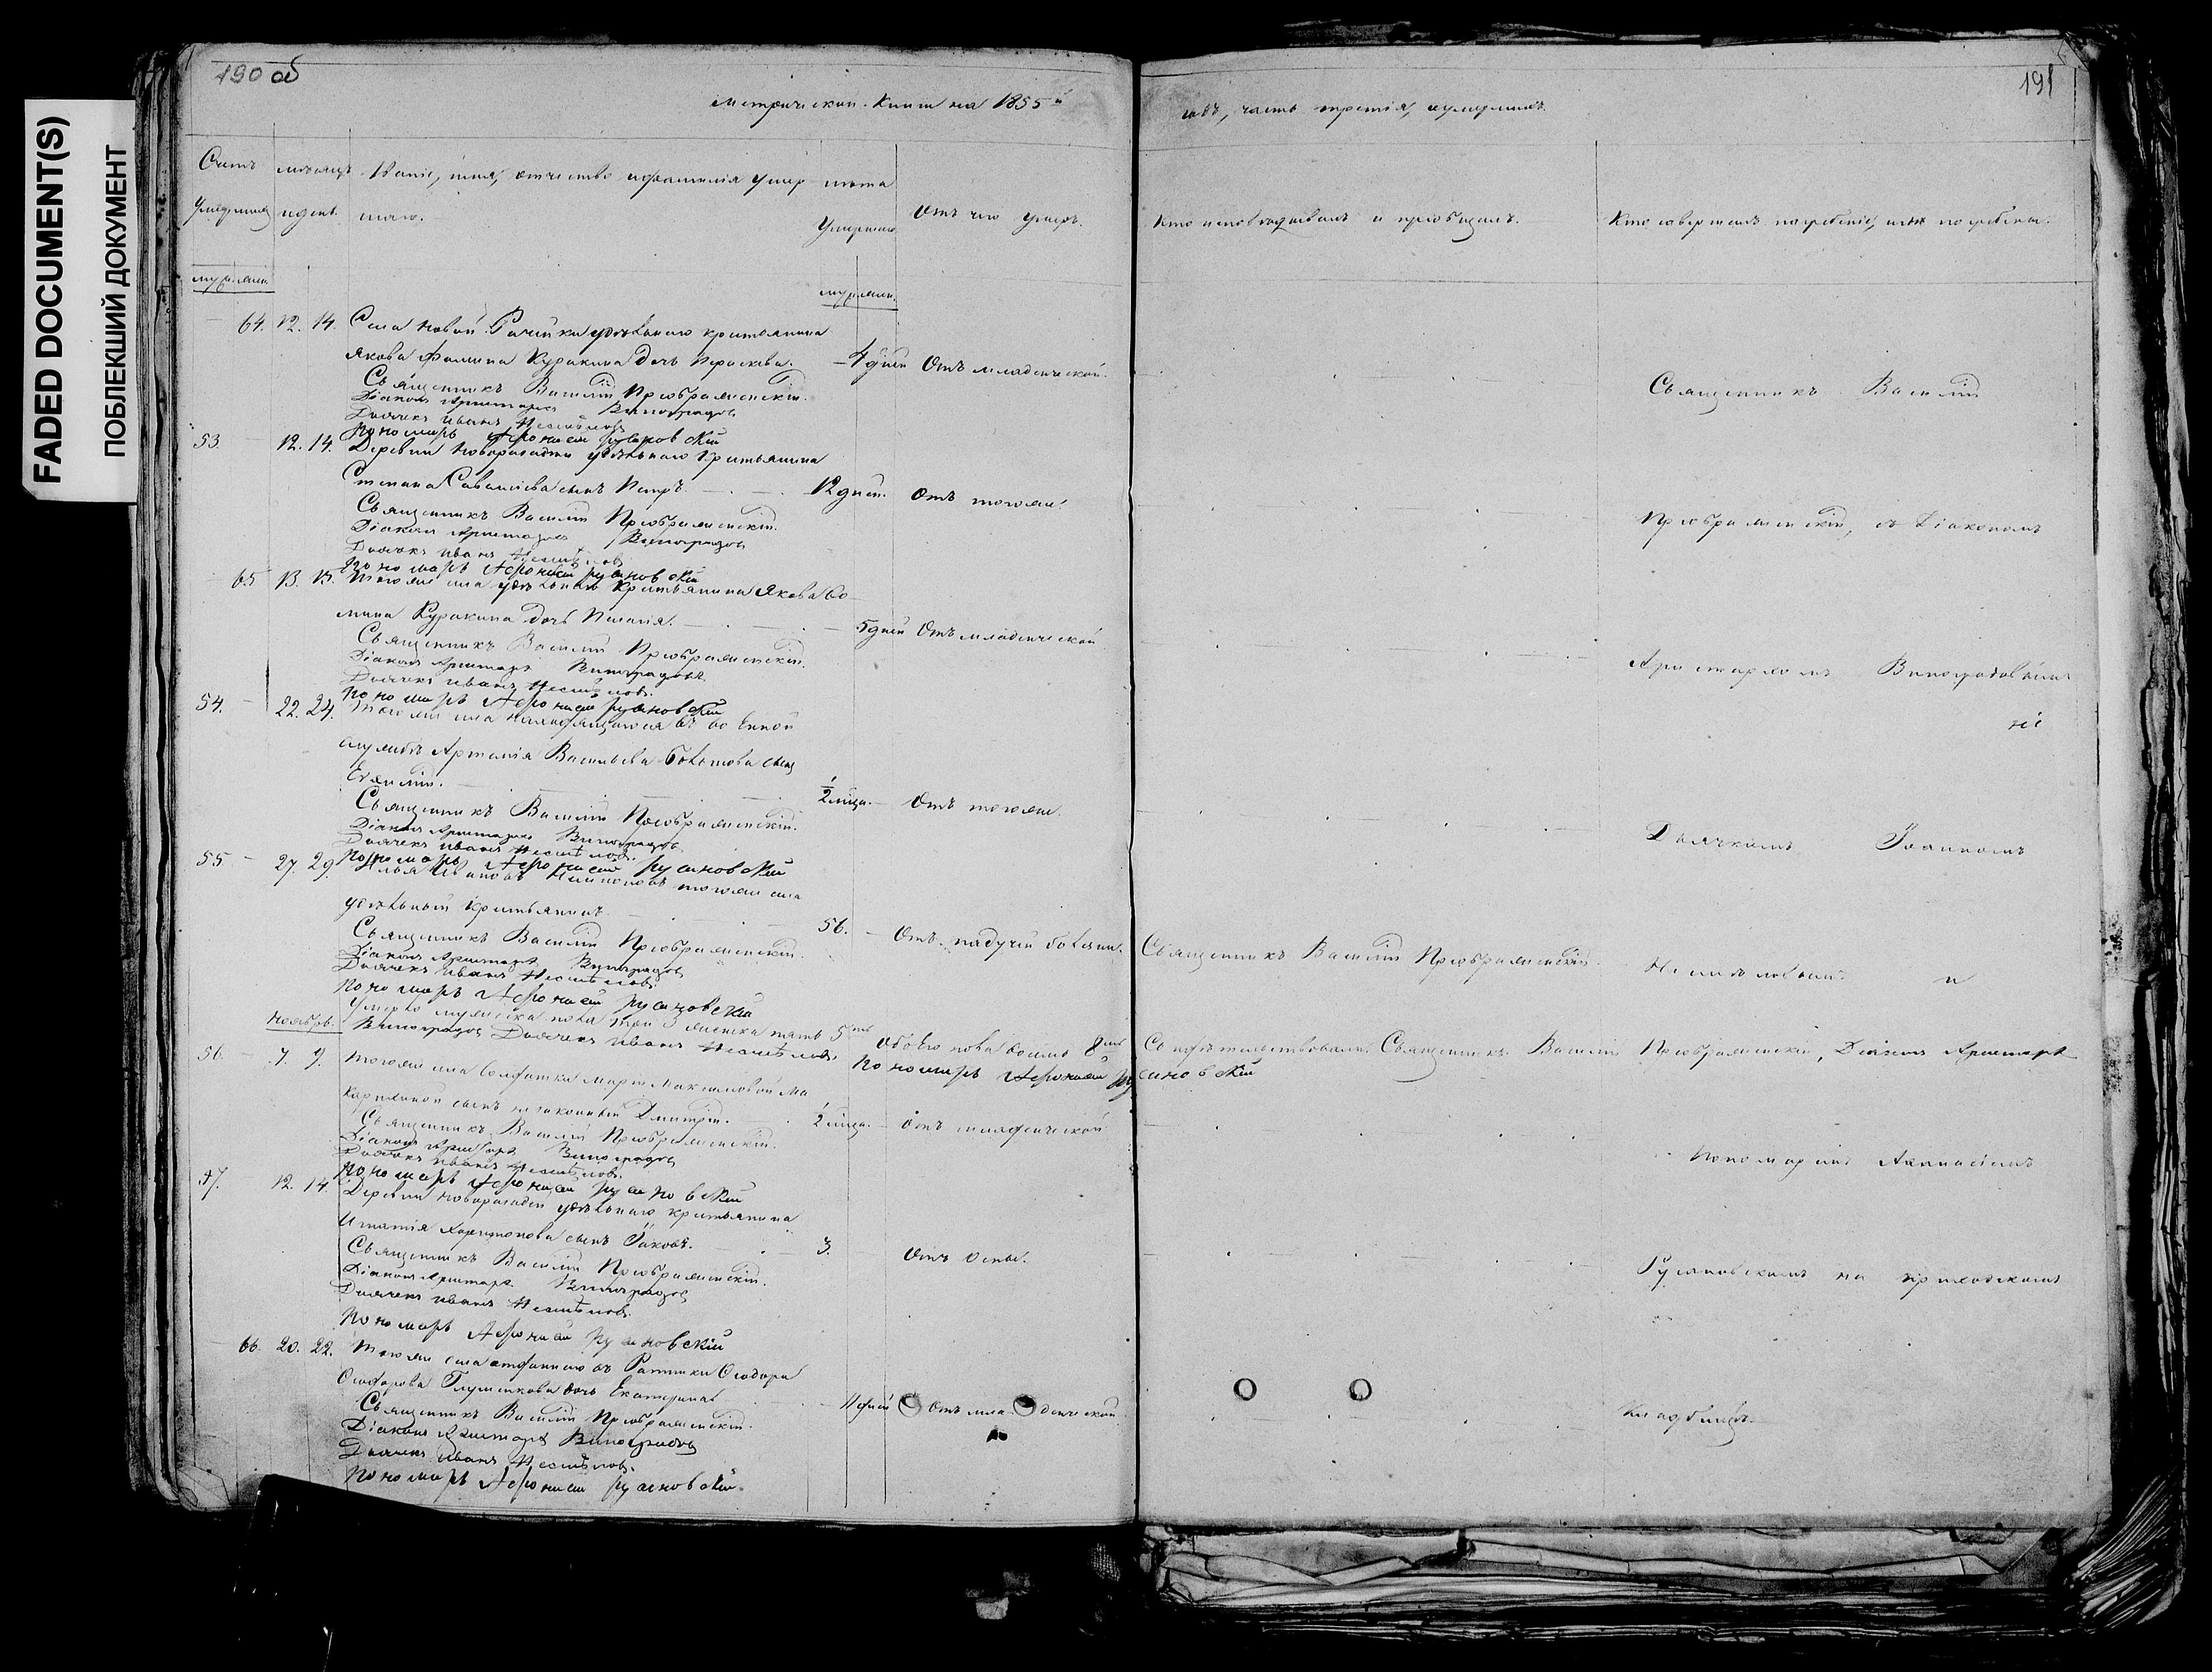 FADED DOCUMENT(S)
ПОБЛЕКШИЙ ДОКУМЕНТ
190 об
191
Метрической Книги на 1855й
годъ, часть третія, о умершихъ.
Счетъ умершихъ
муж. жен.
мѣсяцъ и день.
Званіе, имя, отчество и фамилія умершаго.
лѣта Умершаго
муж. жен.
Отъ чего умеръ.
Кто исповѣдывалъ и пріобщалъ.
Кто совершалъ погребеніе, и гдѣ погребены.
64. 12. 14. Села Новой Рачейки удѣльнаго крестьянина
Якова Фомина Куракина дочь Параскева. 4 дней Отъ младенческой.
Священникъ Василій Преображенскій.
Діаконъ Аристархъ Виноградовъ
Дьячекъ Иванъ Несмѣловъ
Пономарь Афонасій Русановскій
53 12. 14. Деревни удѣльнаго крестьянина
Степана Савельева сынъ Петръ. 12 дней. Отъ тогоже.
Священникъ Василій Преображенскій.
Діаконъ Аристархъ Виноградовъ
Дьячекъ Иванъ Несмѣловъ
Пономарь Афонасій Русановскій
65 13. 15. Тогоже села удѣльнаго Крестьянина Якова Фо-
мина Куракина дочь Пелагія. 5 дней Отъ младенческой
Священникъ Василій Преображенскій.
Діаконъ Аристархъ Виноградовъ
Дьячекъ Иванъ Несмѣловъ.
Пономарь Афонасій Русановскій
54. 22. 24. Тогоже села находящагося въ военной
службѣ Артемія Васильева сынъ
½ мца. Отъ тогоже.
Священникъ Василій Преображенскій.
Діаконъ Аристархъ Виноградовъ
Дьячекъ Иванъ Несмѣловъ.
Пономарь Афонасій Русановскій
55 27. 29 Илья Ивановъ тогоже села
удѣльный крестьянинъ. 56. Отъ падучей болезни. Священникъ Василій Преображенскій.
Священникъ Василій Преображенскій.
Діаконъ Аристархъ Виноградовъ
Дьячекъ Иванъ Несмѣловъ.
Пономарь Афонасій Русановскій
Умерло мужеска пола три 3 женска пять 5ть Обоего пола восмь 8мь Свидѣтельствовали: Священникъ Василій Преображенскій, Діаконъ Аристархъ
Виноградовъ Дьячекъ Иванъ Несмѣловъ. Пономарь Афонасій Русановскій
Ноябрь.
56. 7. 9. Тогоже села Солдатки Марьи Максимовой Ма
сынъ незаконный Димитрій. ½ мца. Отъ младенческой
Священникъ Василій Преображенскій.
Діаконъ Аристархъ Виноградовъ
Дьячекъ Иванъ Несмѣловъ.
Пономарь Афонасій Русановскій
57. 12. 14 Деревни удѣльнаго крестьянина
Игнатія Харитонова сынъ Іаковъ. 3. Отъ оспы.
Священникъ Василій Преображенскій.
Діаконъ Аристархъ Виноградовъ
Дьячекъ Иванъ Несмѣловъ.
Пономарь Афонасій Русановскій
66. 20. 22. Тогоже села отданнаго въ Ратники Ѳеодора
Ѳеодорова Глушенкова дочь Екатерина. 11 дней Отъ младенческой.
Священникъ Василій Преображенскій.
Діаконъ Аристархъ Виноградовъ
Дьячекъ Иванъ Несмѣловъ.
Пономарь Афонасій Русановскій.
Священникъ Василій
Преображенскій, съ Діакономъ
Аристархомъ Виноградовымъ
Дьячкомъ Іоанномъ
Несмѣловымъ и
Пономаремъ Афанасіемъ
Русановскимъ на приходскомъ
кладбищѣ.